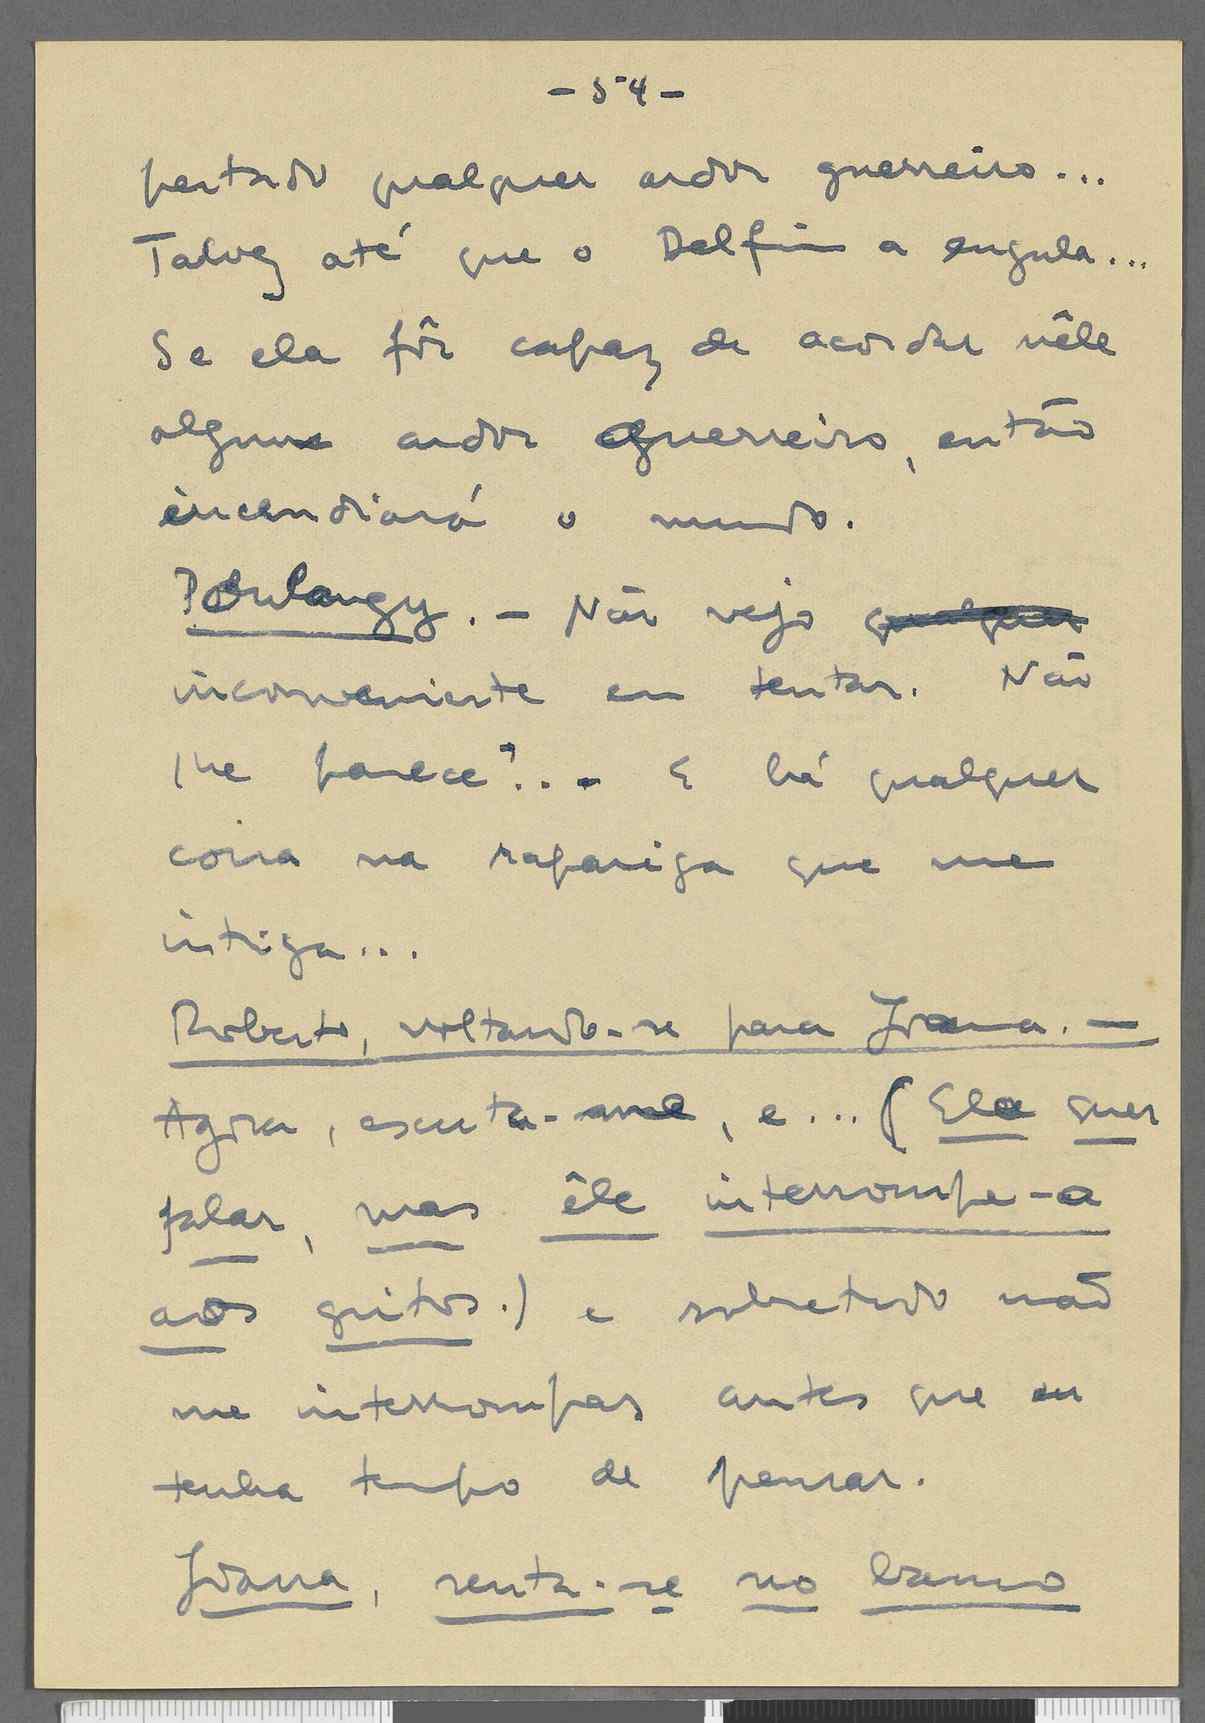 - 54 -
pertado qualquer ardor guerreiro...
Talvez até que o Delfim a engula...
Se ela fôr capaz de acordar nêle
algum ardor guerreiro, então
incendiará o mundo.
Poulangy. - Não vejo qualquer
inconveniente em tentar. Não
lhe parece?... E há qualquer
coisa na rapariga que me
intriga...
Roberto, voltando-se para Joana. -
Agora, escuta-me, e... (Ela quer
falar, mas êle interrompe-a
aos gritos.) e sobretudo não
me interrompas antes que eu
tenha tempo de pensar.
Joana, senta-se no banco